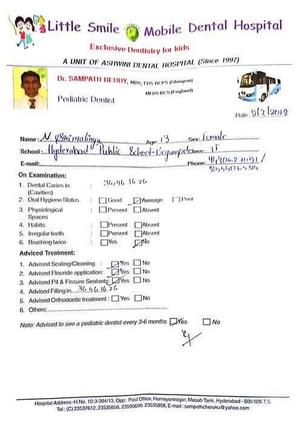 Little Smile Mobile Dental Hospital
Exclusive Dentistry for kids
A UNIT OF ASHWINI DENTAL HOSPITAL (Since 1997)
Dr. SAMPATH REDDY, MDS, FDS RCPS (Glasgow)
MFDS RCS (England)
Pediatric Dentist
Date:
Name: N. Age: 13 Sex: Female
School: Hyderabad Public School-
E-mail: Phone:
On Examination:
1. Dental Caries in : 36,46 16 26
(Cavities)
2. Oral Hygiene Status : Good Average Poor
3. Physiological : Present Absent
Spaces
4. Habits : Present Absent
5. Irregular teeth : Present Absent
6. Brushing twice : Yes No
Adviced Treatment:
1. Advised Scaling/Cleaning : Yes No
2. Advised Flouride application: Yes No
3. Advised Pit & Fissure Sealants: Yes No
4. Advised Filling in 36 46 16 26
5. Advised Orthodontic treatment : Yes No
6. Others:
Note: Advised to see a pediatric dentist every 3-6 months Yes No
Hospital Address: H.No. 10-3-304/13, Opp: Post Office, Humayunnagar, Masab Tank, Hyderabad - 500 028 T.S.
Tel: (C) 23537612, 23535656, 23590690 23535858, E-mail: sampathcheruku@yahoo.com